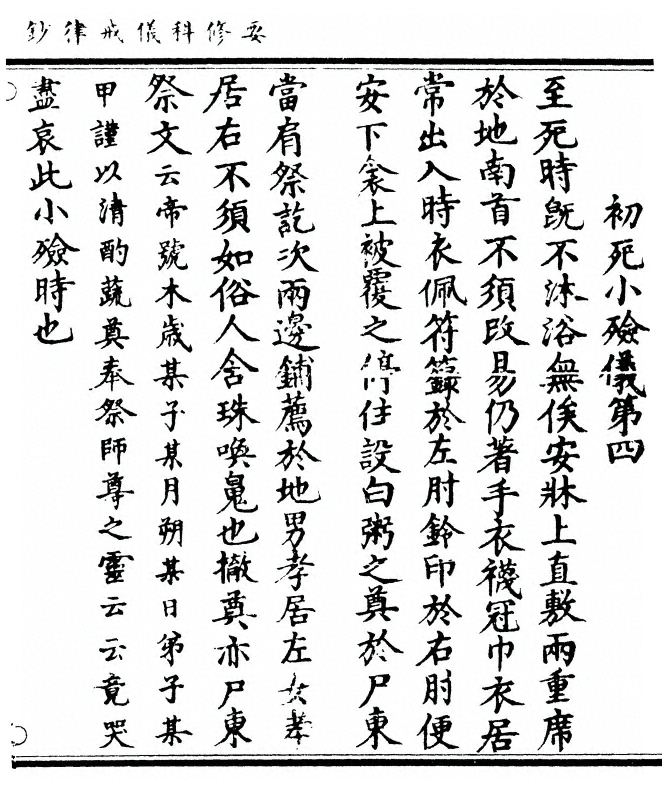 要修科儀戒律鈔
初死小殮儀第四
至死時旣不沐浴無俟安牀上直敷兩重席
於地南首不須改易仍著手衣襪冠巾衣居
常出入時衣佩符籙於左肘鈴印於右肘便
安下衾上被覆之停住設白粥之奠於尸東
當肩祭訖次兩邊鋪薦於地男孝居左女孝
居右不須如俗人含珠喚鬼也撤奠亦尸東
祭文云帝號木歲某子某月朔某日弟子某
甲謹以清酌蔬奠奉祭師尊之靈云云竟哭
盡哀此小殮時也